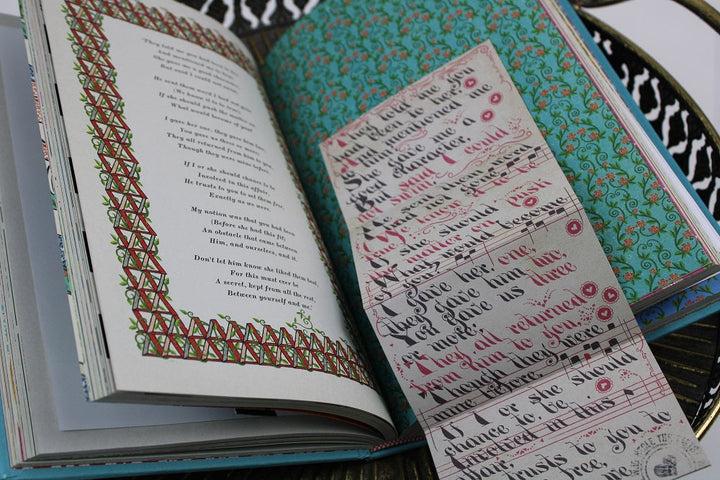 'They told me you had been to her,
And mentioned me to him:
She gave me a good character,
But said I could not swim.
He sent them word I had not gone
(We know it to be true):
If she should push the matter on,
What would become of you?
I gave her one, they gave him two,
You gave us three or more;
They all returned from him to you,
Though they were mine before.
If I or she should chance to be
Involved in this affair,
He trusts to you to set them free,
Exactly as we were.
My notion was that you had been
(Before she had this fit)
An obstacle that came between
Him, and ourselves, and it.
Don't let him know she liked them best,
For this must ever be
A secret, kept from all the rest,
Between yourself and me.'
They told me you
had been to her,
And mentioned me
She gave me a
Good character,
not swim. I could
He sent them word
(We know
If she should push
the matter on,
What would become
of you?
I gave her one,
they gave him two,
You gave us three
or more;
They all returned
from him to you,
Though they were
mine before.
If I or she should
chance to be
Involved in this
affair,
trusts to you to
free,